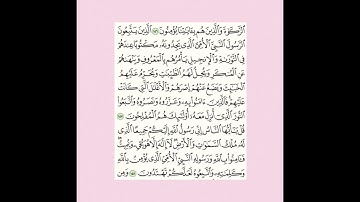 ٱلزَّكَوٰةَ وَٱلَّذِينَ هُم بِـَٔايَـٰتِنَا يُؤْمِنُونَ ١٥٦ ٱلَّذِينَ يَتَّبِعُونَ
ٱلرَّسُولَ ٱلنَّبِىَّ ٱلْأُمِّىَّ ٱلَّذِى يَجِدُونَهُۥ مَكْتُوبًا عِندَهُمْ
فِى ٱلتَّوْرَىٰةِ وَٱلْإِنجِيلِ يَأْمُرُهُم بِٱلْمَعْرُوفِ وَيَنْهَىٰهُمْ
عَنِ ٱلْمُنكَرِ وَيُحِلُّ لَهُمُ ٱلطَّيِّبَـٰتِ وَيُحَرِّمُ عَلَيْهِمُ
ٱلْخَبَـٰٓئِثَ وَيَضَعُ عَنْهُمْ إِصْرَهُمْ وَٱلْأَغْلَـٰلَ ٱلَّتِى كَانَتْ
عَلَيْهِمْ فَٱلَّذِينَ ءَامَنُوا۟ بِهِۦ وَعَزَّرُوهُ وَنَصَرُوهُ وَٱتَّبَعُوا۟
ٱلنُّورَ ٱلَّذِىٓ أُنزِلَ مَعَهُۥٓ أُو۟لَـٰٓئِكَ هُمُ ٱلْمُفْلِحُونَ ١٥٧
قُلْ يَـٰٓأَيُّهَا ٱلنَّاسُ إِنِّى رَسُولُ ٱللَّهِ إِلَيْكُمْ جَمِيعًا ٱلَّذِى
لَهُۥ مُلْكُ ٱلسَّمَـٰوَٰتِ وَٱلْأَرْضِ لَآ إِلَـٰهَ إِلَّا هُوَ يُحْىِۦ وَيُمِيتُ
فَـَٔامِنُوا۟ بِٱللَّهِ وَرَسُولِهِ ٱلنَّبِىِّ ٱلْأُمِّىِّ ٱلَّذِى يُؤْمِنُ بِٱللَّهِ
وَكَلِمَـٰتِهِۦ وَٱتَّبِعُوهُ لَعَلَّكُمْ تَهْتَدُونَ ١٥٨ وَمِن